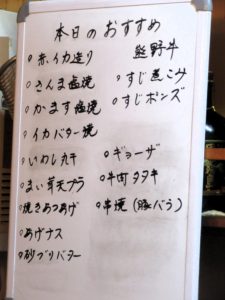 本日のおすすめ
○赤イカ造り
○さんま塩焼
○かます塩焼
○イカバター焼
○いわし丸干
○まい茸天プラ
○焼きあつあげ
○あげナス
○砂ブリバター
熊野牛
○すじ煮こみ
○すじポンズ
○ギョーザ
○牛肉タタキ
○串焼(豚バラ)